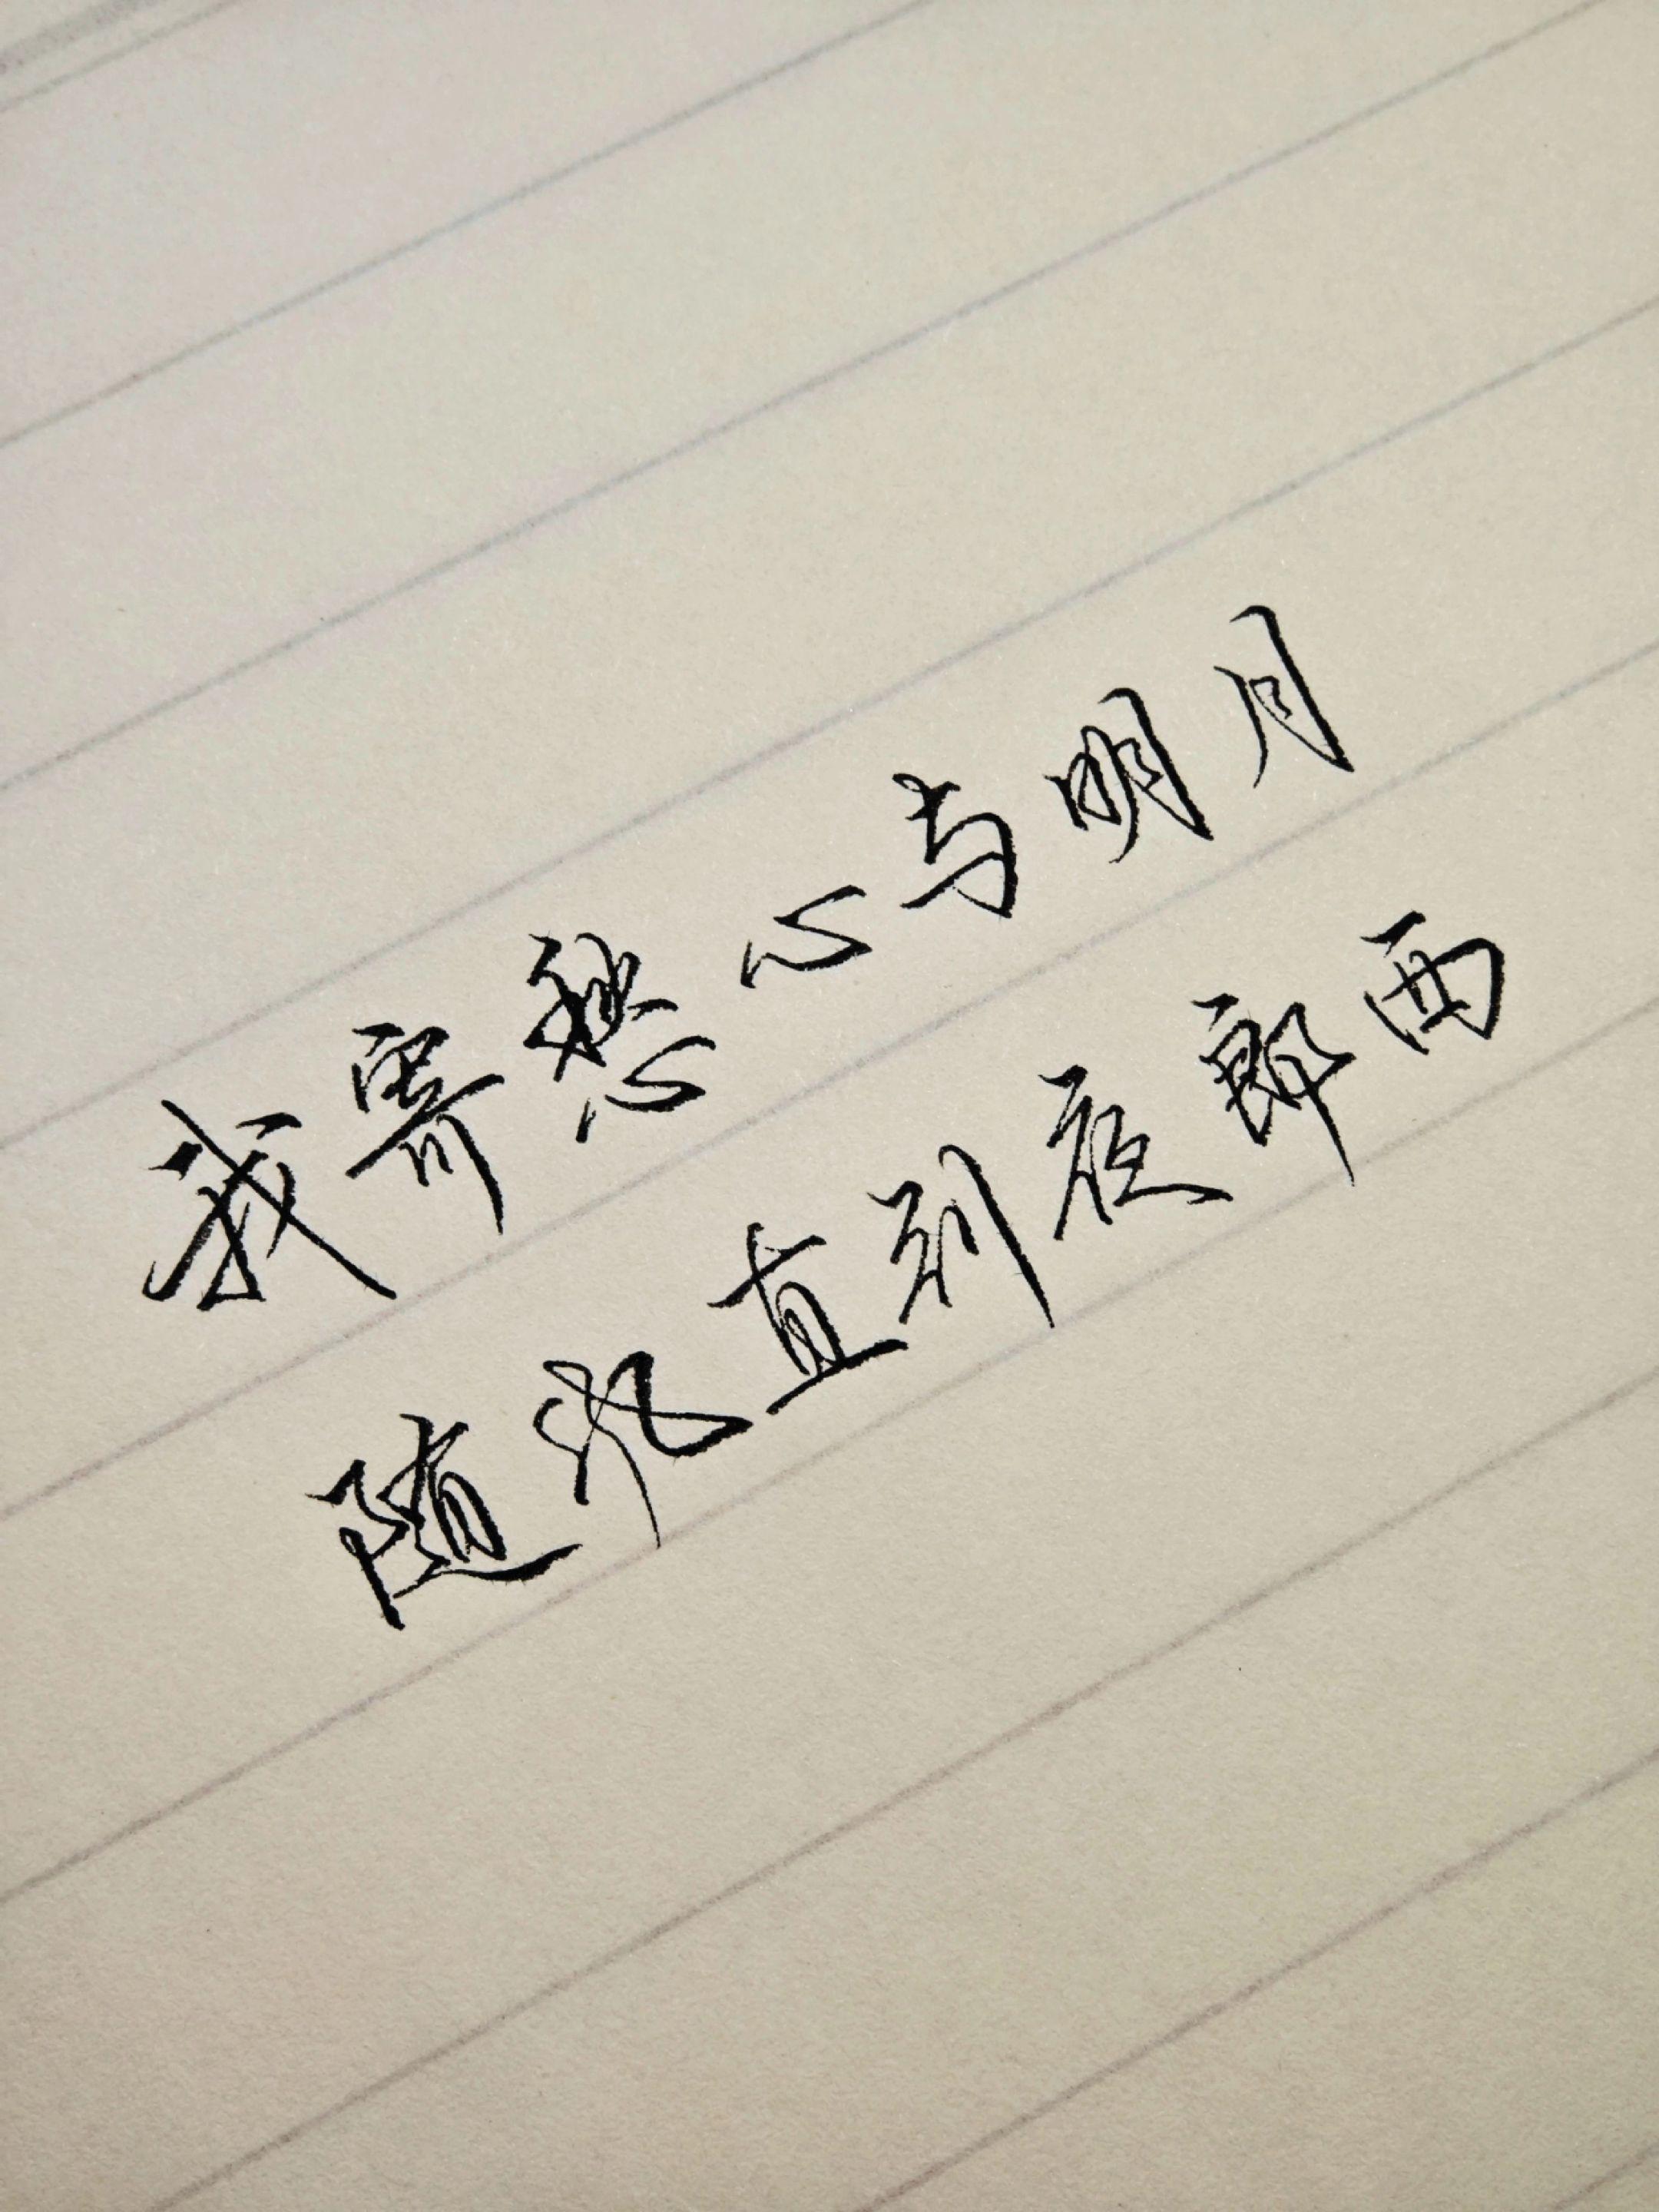 我寄愁心与明月
随风直到夜郎西